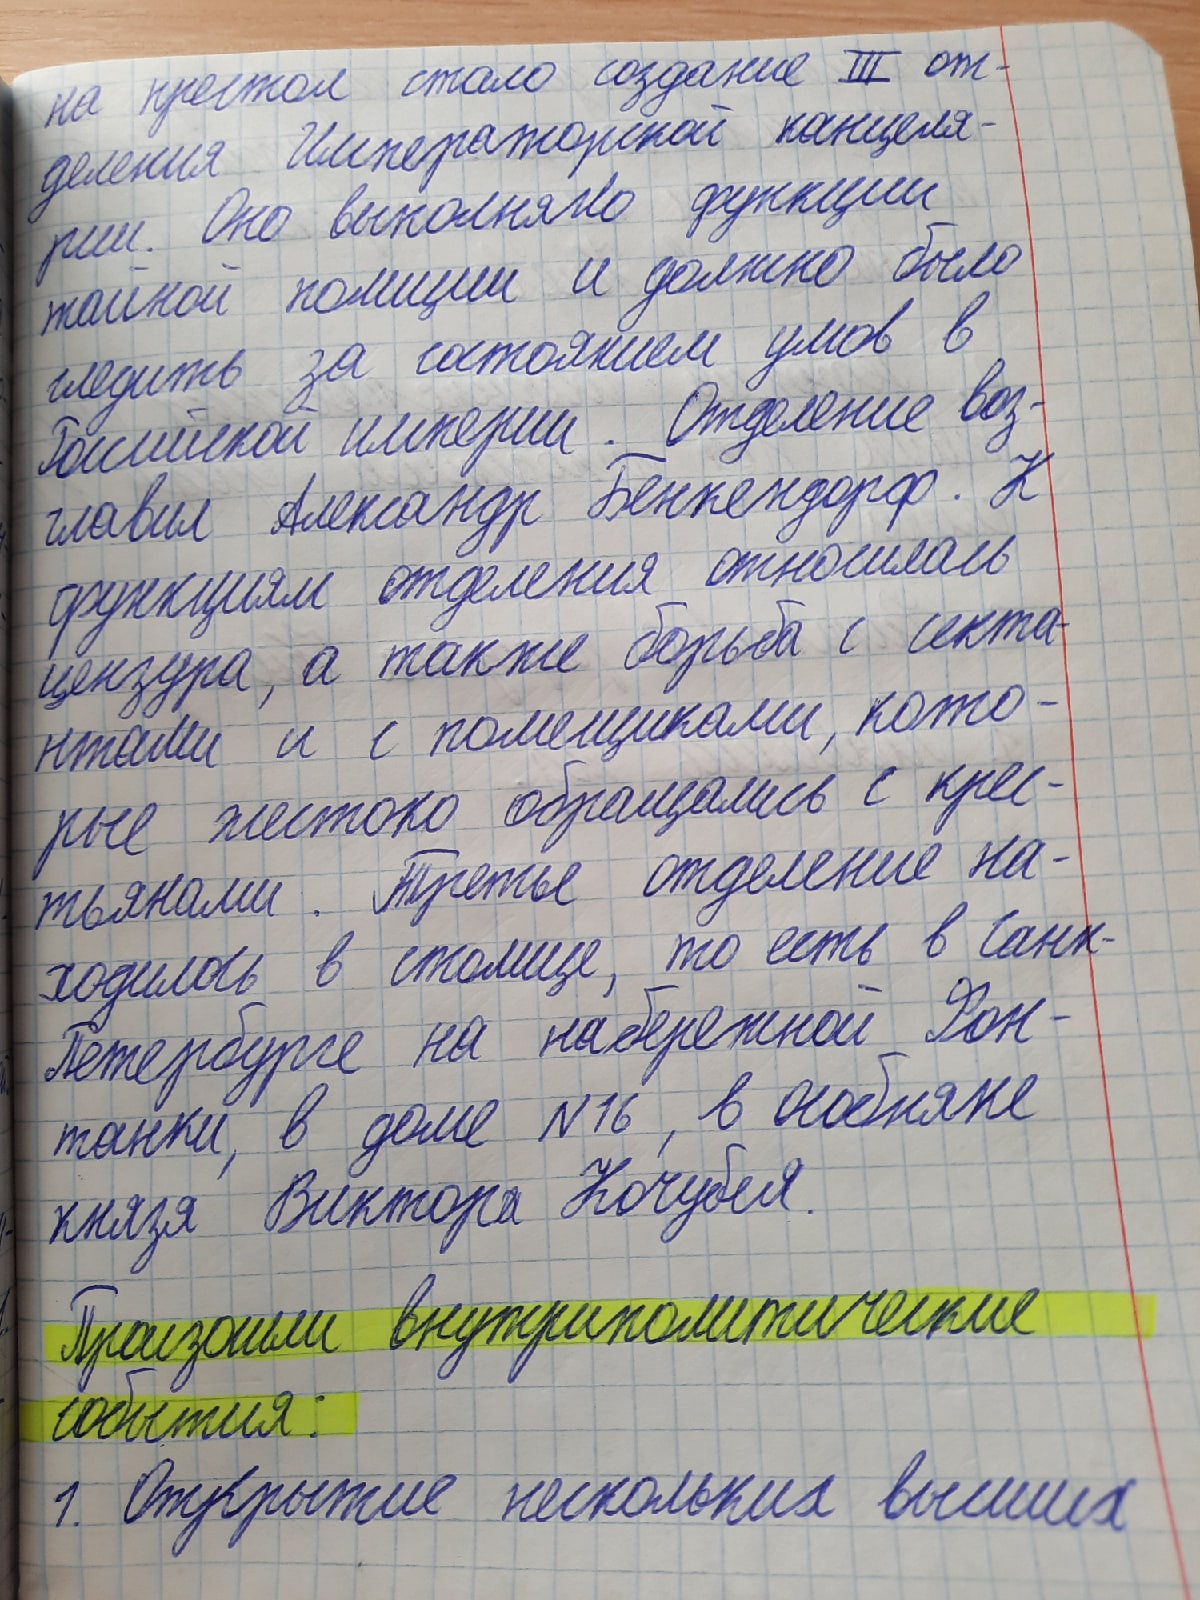 на престол стало создание III от-
деления Императорской канцеля-
рии. Оно выполняло функции
тайной полиции и должно было
следить за состоянием умов в
Российской империи. Отделение воз-
главил Александр Бенкендорф. К
функциям отделения относилась
цензура, а также борьба с секта-
нтами и с помещиками, кото-
рые жестоко обращались с крес-
тьянами. Третье отделение на-
ходилось в столице, то есть в Санк-
Петербурге на набережной Фон-
танки, в доме №16, в особняке
князя Виктора Кочубея.
Произошли внутриполитические
события:
1. Открытие нескольких высших